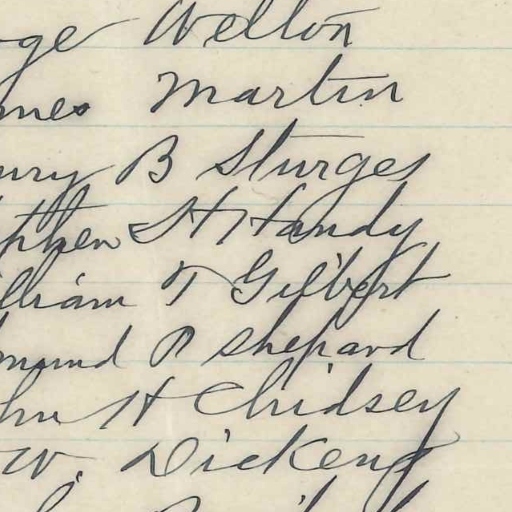 ge Welton
mes Martin
nry B Sturges
phen H Handy
lliam T Gilbert
mund P Shepard
hn H Chidsey
W. Dickens